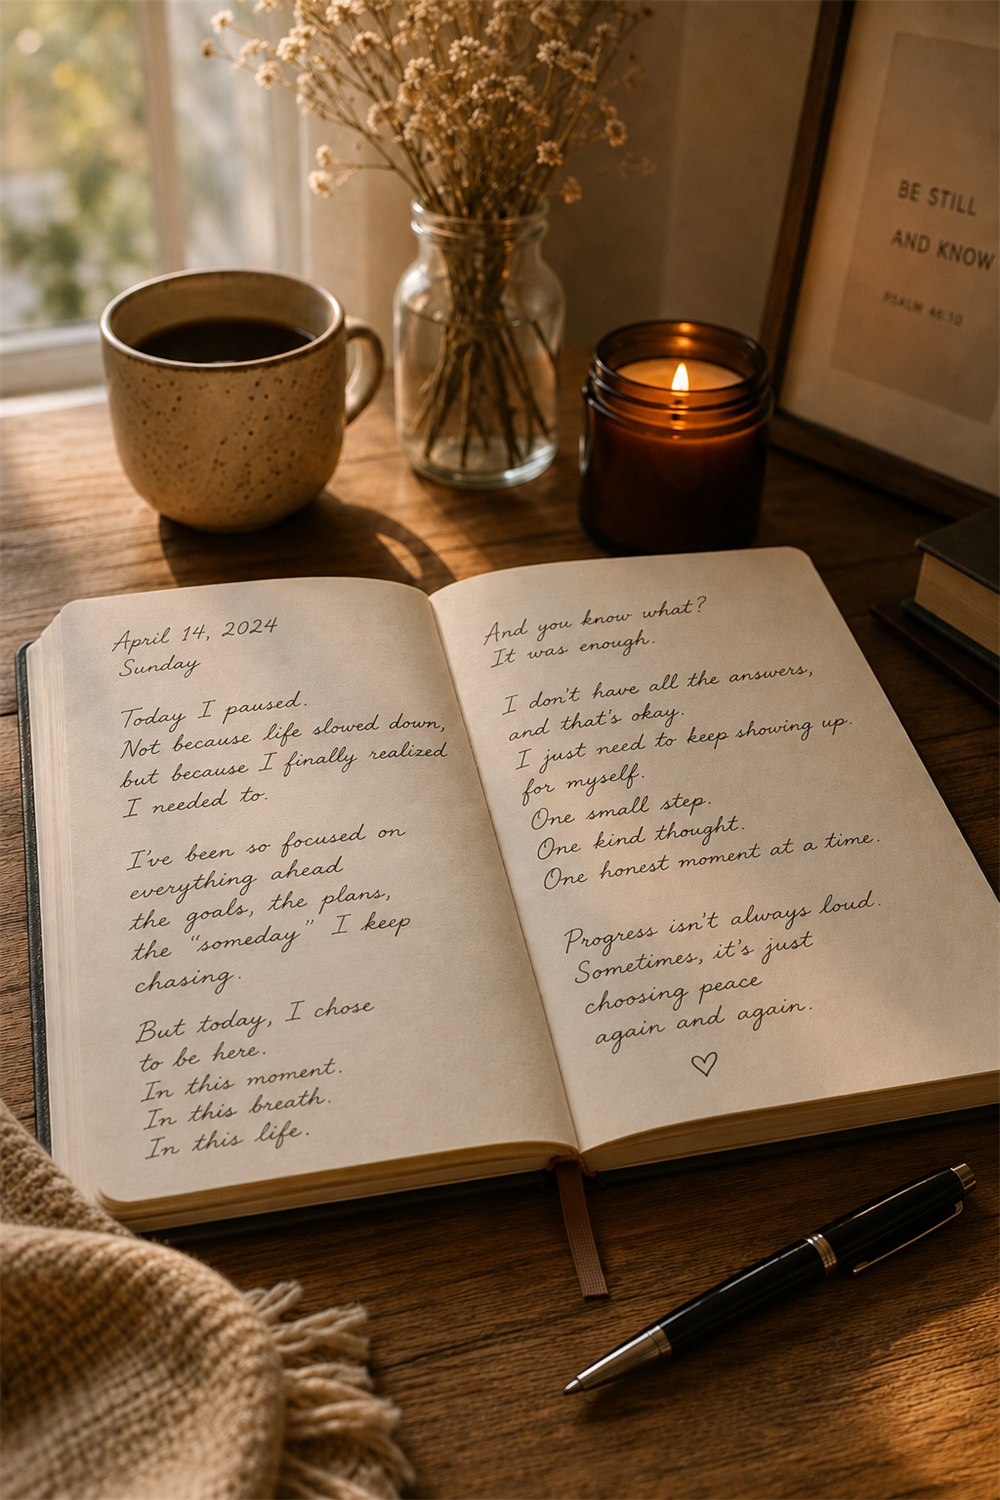 April 14, 2024
Sunday
Today I paused.
Not because life slowed down,
but because I finally realized
I needed to.
I've been so focused on
everything ahead
the goals, the plans,
the "someday" I keep
chasing.
But today, I chose
to be here.
In this moment.
In this breath.
In this life.
And you know what?
It was enough.
I don't have all the answers,
and that's okay.
I just need to keep showing up.
for myself.
One small step.
One kind thought.
One honest moment at a time.
Progress isn't always loud.
Sometimes, it's just
choosing peace
again and again.
BE STILL
AND KNOW
PSALM 46:10